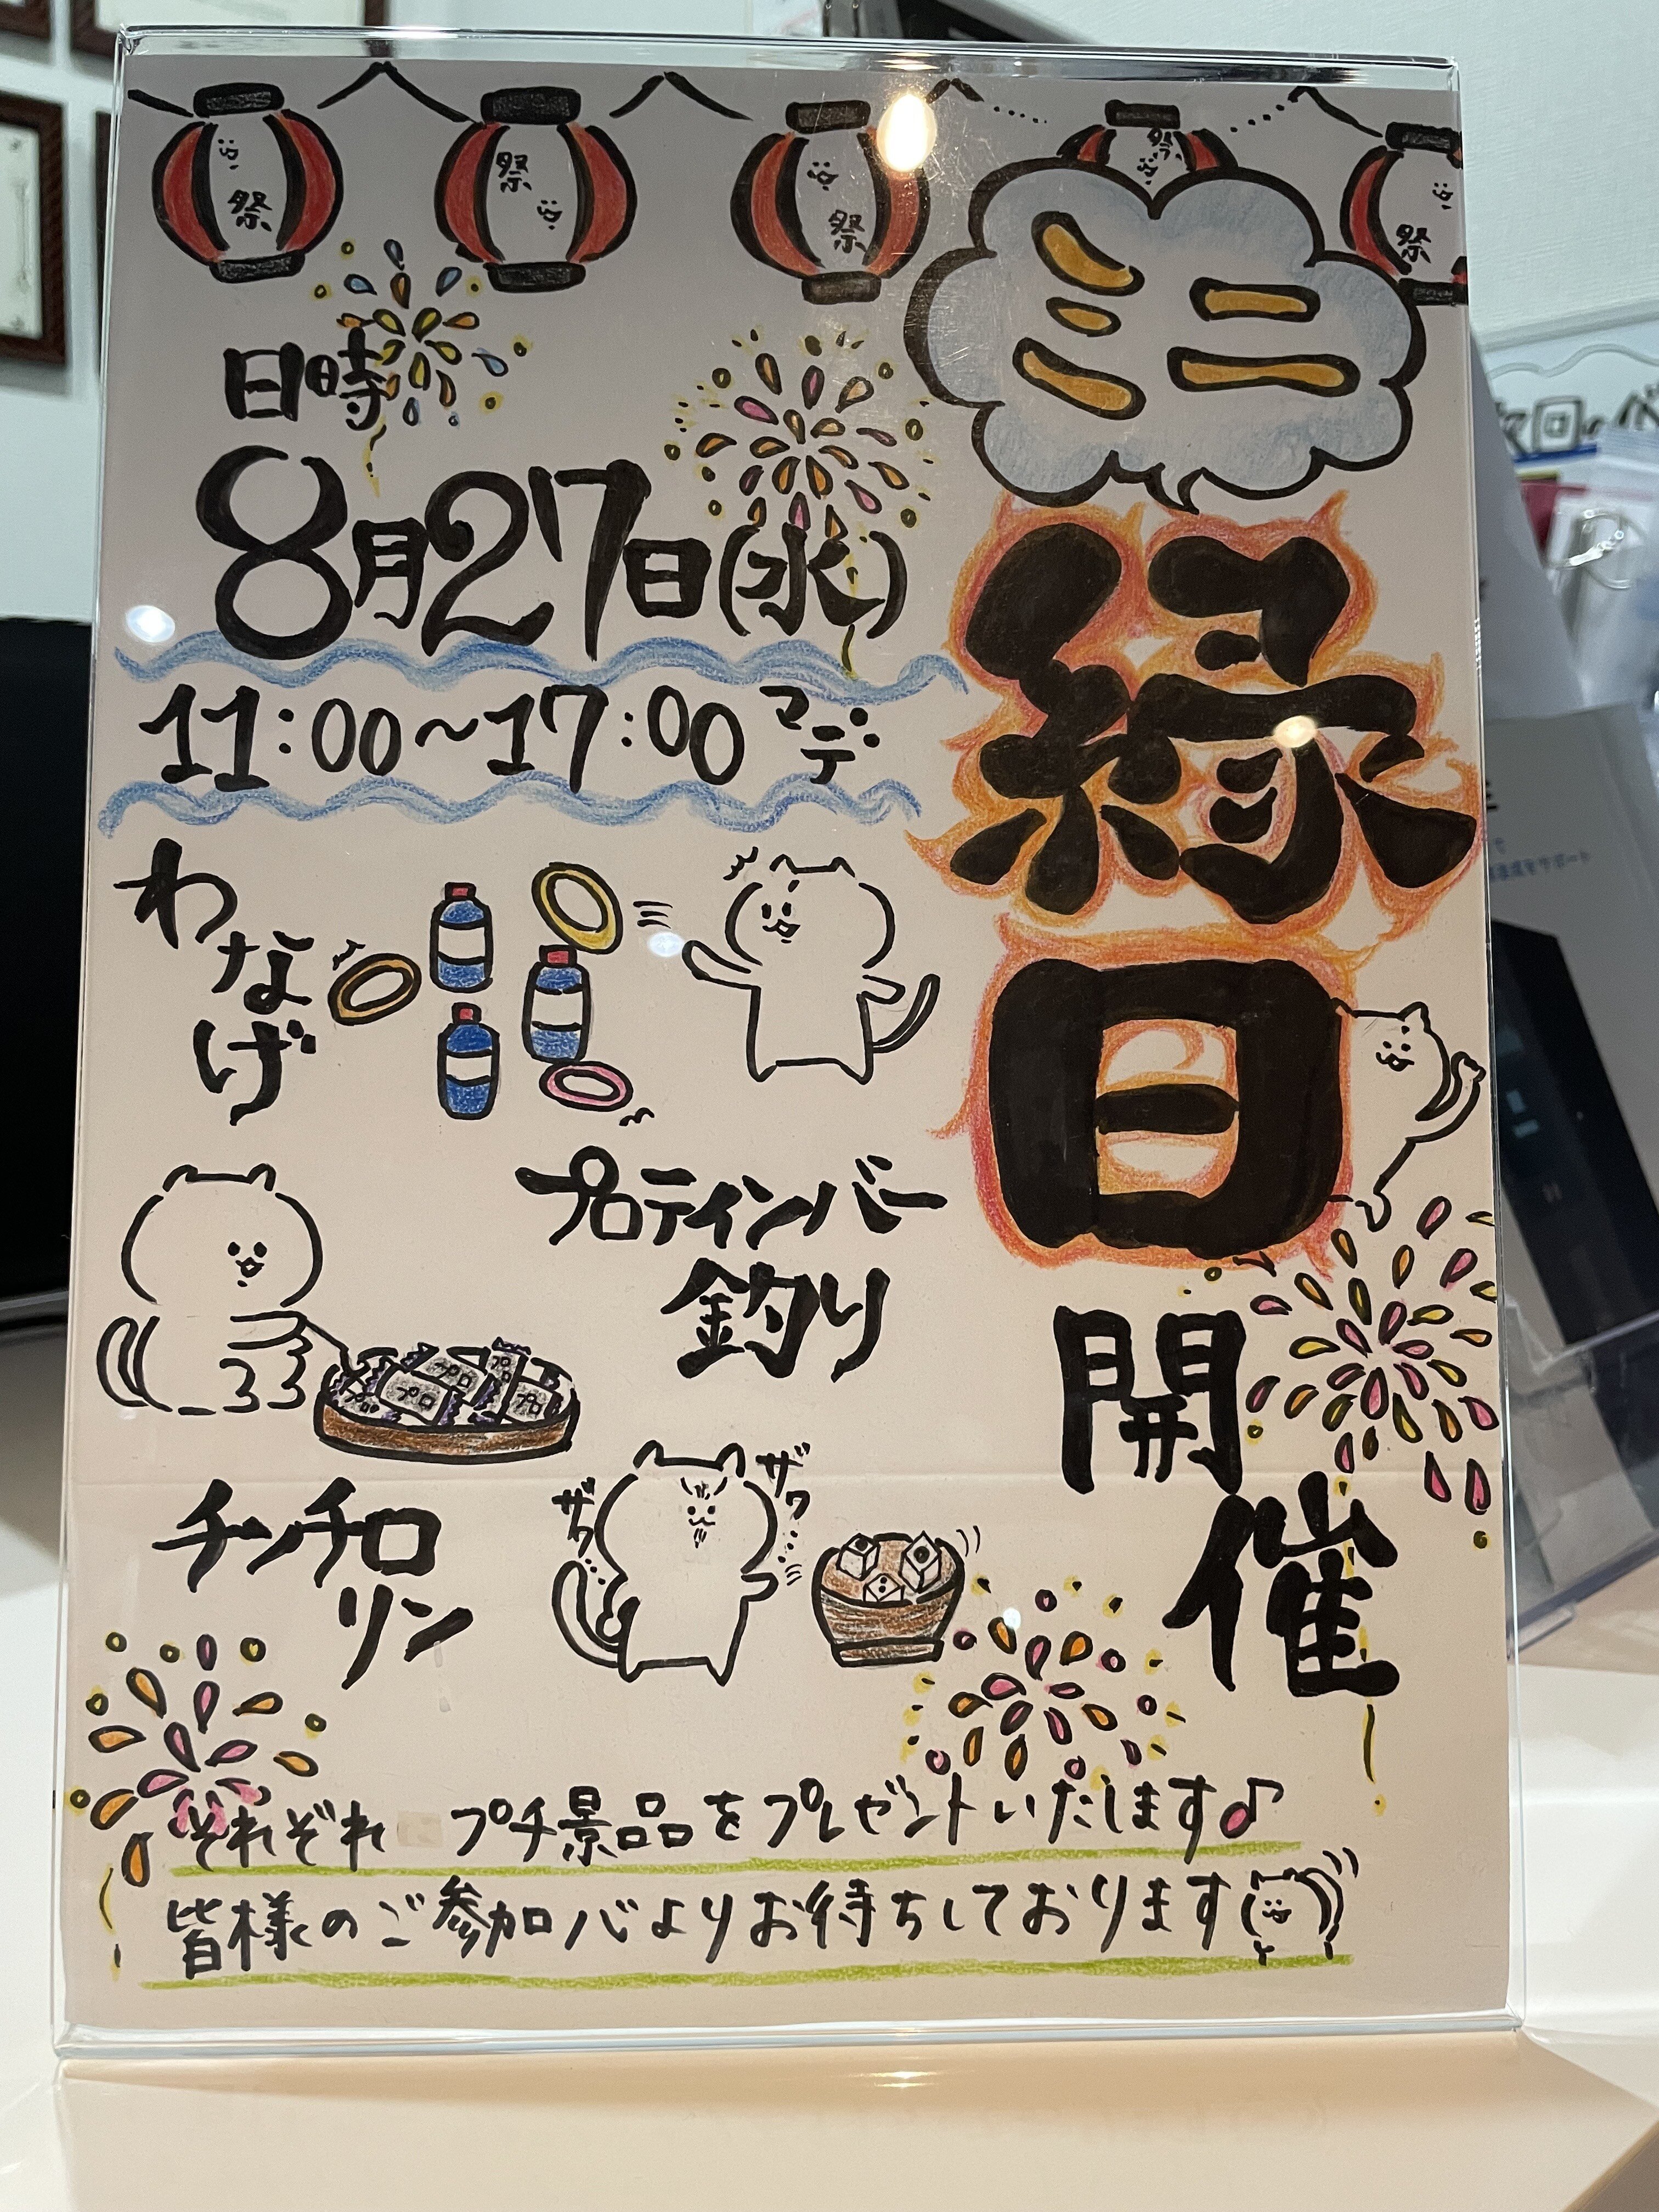 祭
祭
祭
祭
祭
ミニ
縁日
開催
日時
8月27日(水)
11:00～17:00マデ
わなげ
プロテインバー
釣り
プロ
プロ
プロ
プロ
チンチロ
リン
ザワ
ザワ…
それぞれ プチ景品をプレゼントいたします♪
皆様のご参加心よりお待ちしております